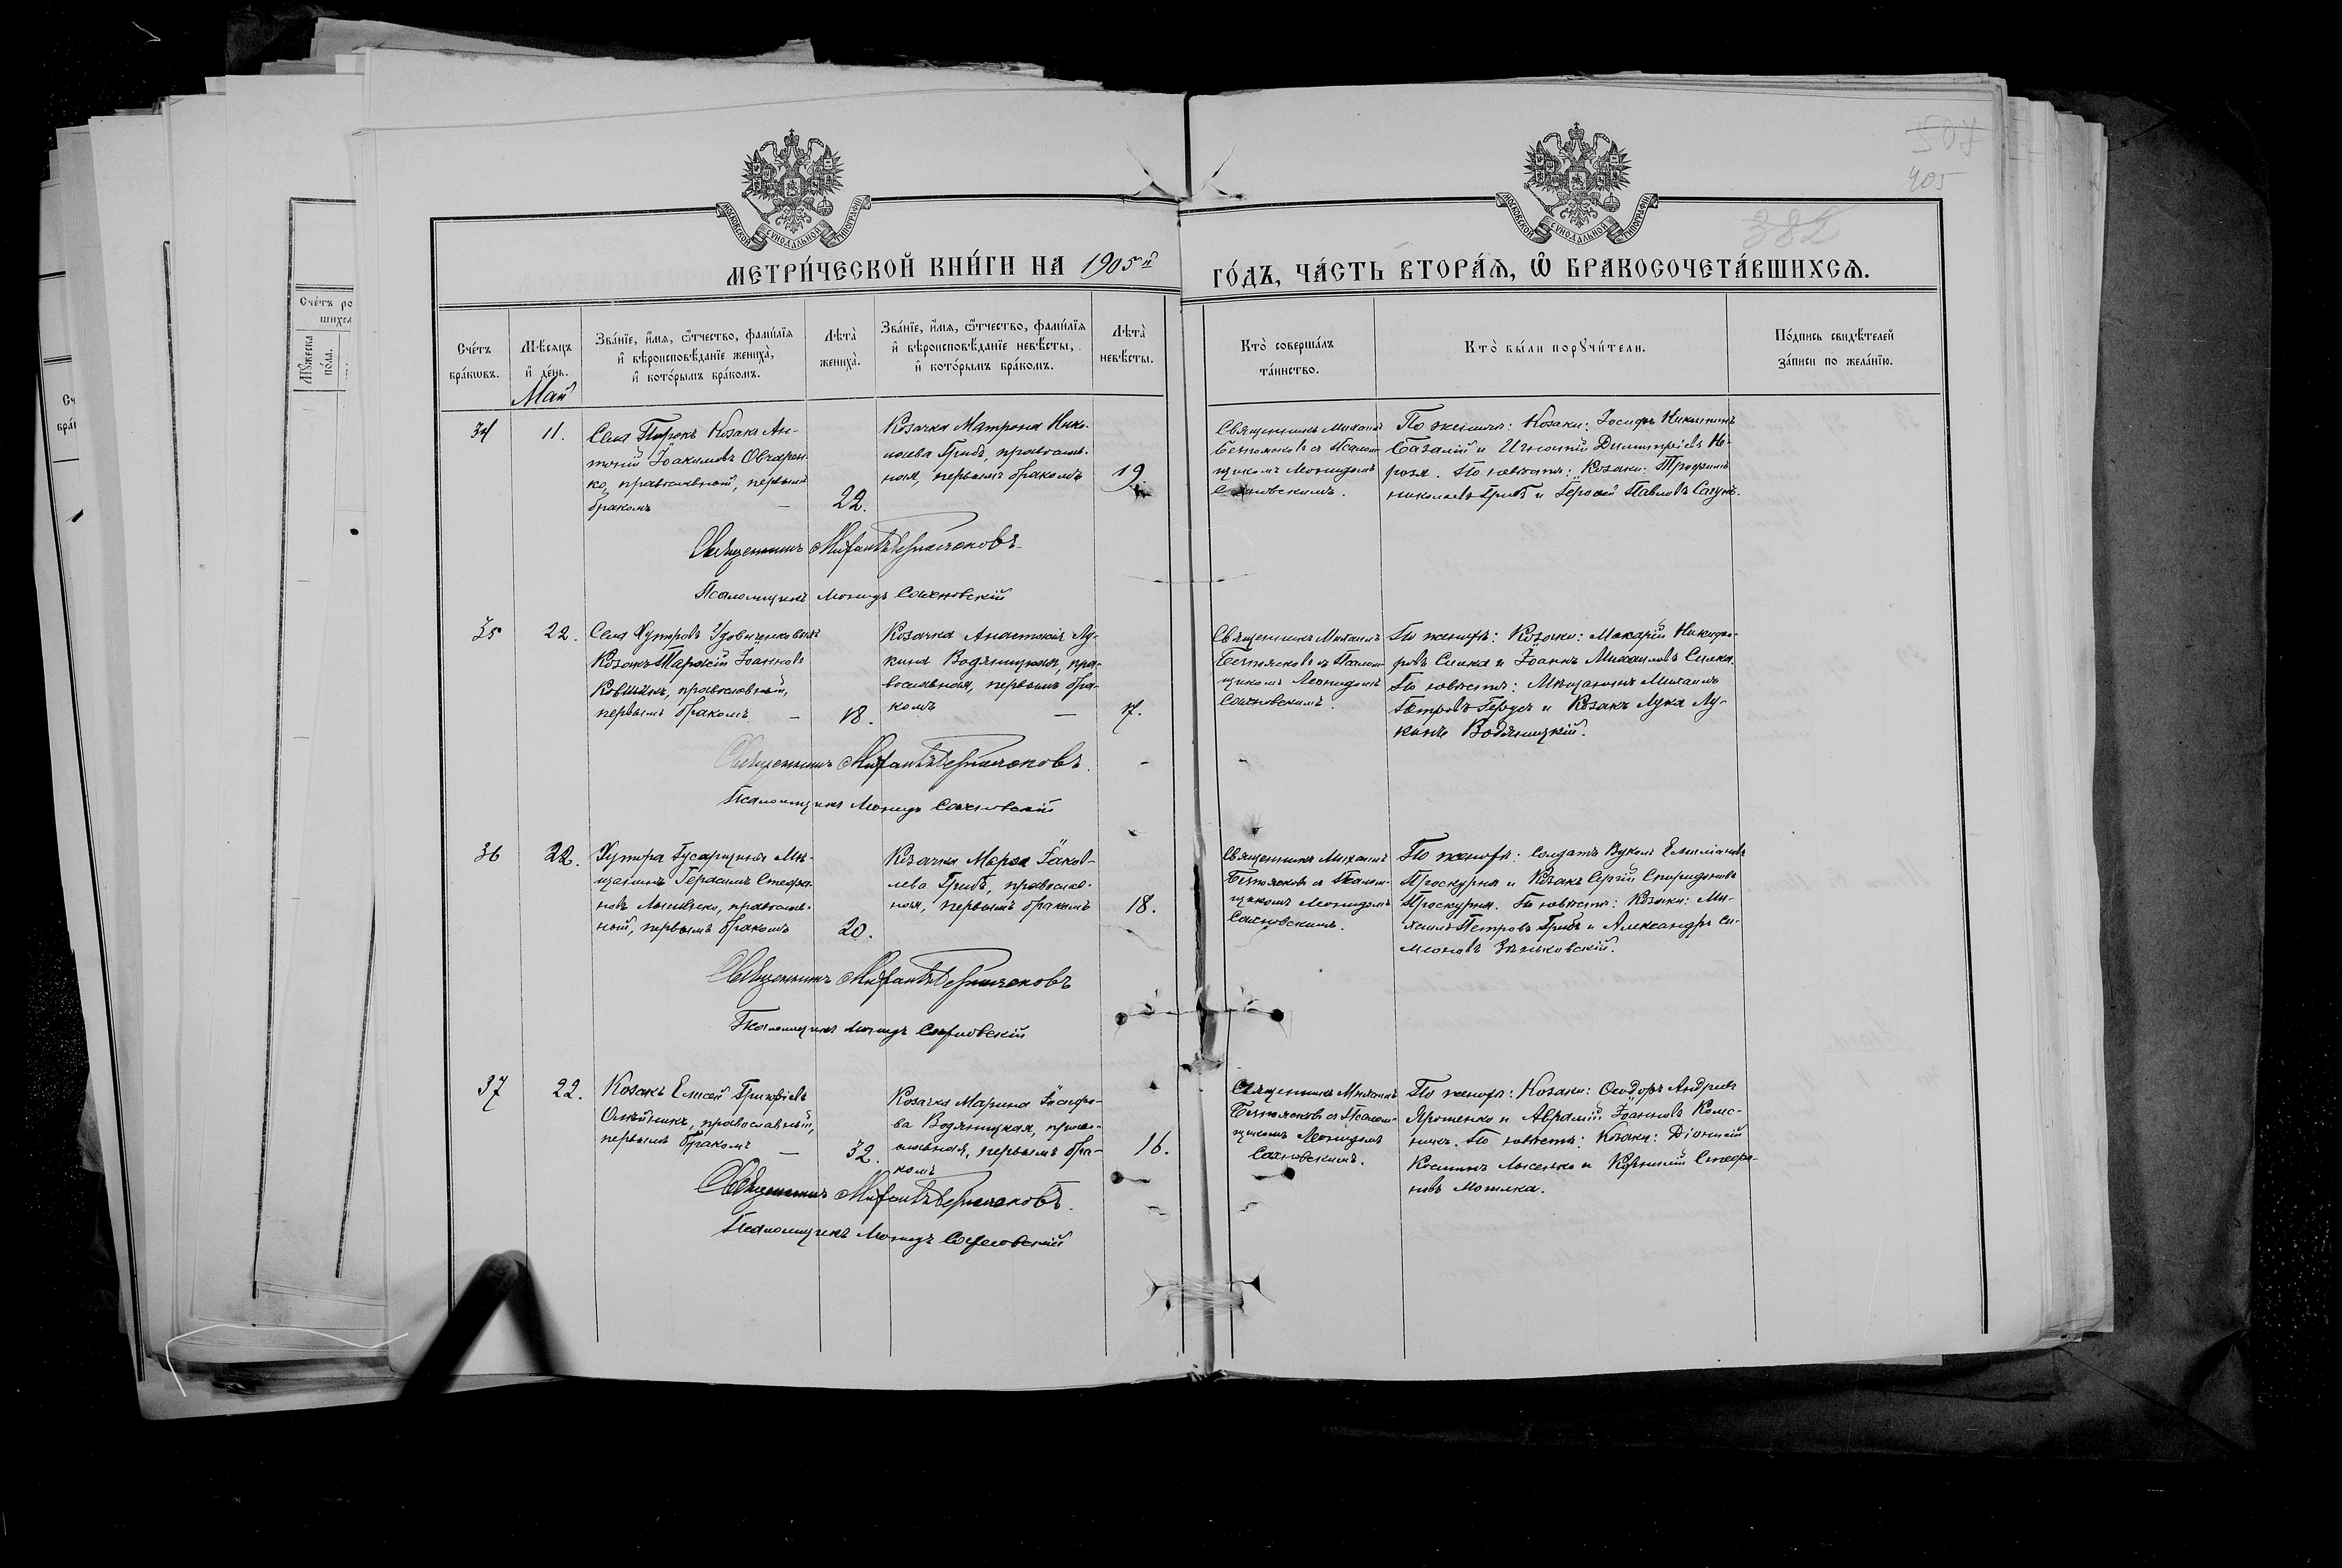 507
405
382
МОСКОВСКОЙ СУНОДАЛЬНОЙ ТИПОГРАФІИ
МОСКОВСКОЙ СУНОДАЛЬНОЙ ТИПОГРАФІИ
МЕТРИ́ЧЕСКОЙ КНИ́ГИ НА 1905й
ГО́ДЪ, ЧА́СТЬ ВТОРА́Ѧ, Ѽ БРАКОСОЧЕТА́ВШИХСѦ.
Сче́тъ бра́кѡвъ.
Мѣ́сѧцъ и҆ де́нь.
Зва́нїе, и҆́мѧ, ѻ҆́тчество, фами́лїѧ и҆ вѣроисповѣ́данїе жениха̀, и҆ кото́рымъ бра́комъ.
Лѣта̀ жениха̀.
Зва́нїе, и҆́мѧ, ѻ҆́тчество, фами́лїѧ и҆ вѣроисповѣ́данїе невѣ́сты, и҆ кото́рымъ бра́комъ.
Лѣта̀ невѣ́сты.
Кто̀ соверша́лъ та́инство.
Кто̀ бы́ли порꙋчи́тели.
По́дпись свидѣ́телей за́писи по жела́нїю.
Май
34
11.
Села Козакъ Ан-
тоній Іоакимовъ Овчарен-
ко, православный, первымъ
бракомъ
22.
Козачка Матрона Нико-
лаева Грибъ, православ-
ная, первымъ бракомъ
19.
Священникъ Михаилъ
съ Псалом-
щикомъ Леонидомъ
По женихѣ: Козаки: Іосифъ Никитинъ
Базалій и Игнатій Димитріевъ
По невѣстѣ: Козаки: Трофимъ
Николаевъ Грибъ и Павловъ
Священникъ Михаилъ
Псаломщикъ Леонидъ
35
22.
Села Хуторовъ
Козакъ Тарасій Іоанновъ
православный,
первымъ бракомъ
18.
Козачка Анастасія Лу-
кина Водяницкая, пра-
вославная, первымъ бра-
комъ
17.
Священникъ Михаилъ
съ Псалом-
щикомъ Леонидомъ
По женихѣ: Козаки: Макарій Никифо-
ровъ и Іоаннъ Михаиловъ
По невѣстѣ: Мѣщанинъ Михаилъ
Петровъ и Козакъ Лука Лу-
кинъ Водяницкій.
Священникъ Михаилъ
Псаломщикъ Леонидъ
36
22.
Хутора Гусарщина Мѣ-
щанинъ Герасимъ Стефа-
новъ православ-
ный, первымъ бракомъ
20.
Козачка Марѳа Іаков-
лева Грибъ, православ-
ная, первымъ бракомъ
18.
Священникъ Михаилъ
съ Псалом-
щикомъ Леонидомъ
По женихѣ: Солдатъ Вуколъ Емиліановъ
Проскурня и Козакъ Сергій Спиридоновъ
Проскурня. По невѣстѣ: Козаки: Ми-
хаилъ Петровъ Грибъ и Александръ Си-
меоновъ Зѣньковскій.
Священникъ Михаилъ
Псаломщикъ Леонидъ
37
22.
Козакъ Елисей Григоріевъ
Олѣйникъ, православный,
первымъ бракомъ
32.
Козачка Марина Іосифо-
ва Водяницкая, право-
славная, первымъ бра-
комъ
16.
Священникъ Михаилъ
съ Псалом-
щикомъ Леонидомъ
По женихѣ: Козаки: Ѳеодоръ Андреевъ
Ярошенко и Аврамій Іоанновъ Колес-
никъ. По невѣстѣ: Козаки: Діонисій
Косминъ Лысенко и Корнилій Стефа-
новъ Могилка.
Священникъ Михаилъ
Псаломщикъ Леонидъ
Сче́тъ ро
шихсѧ
Мꙋ́жеска
по́ла.